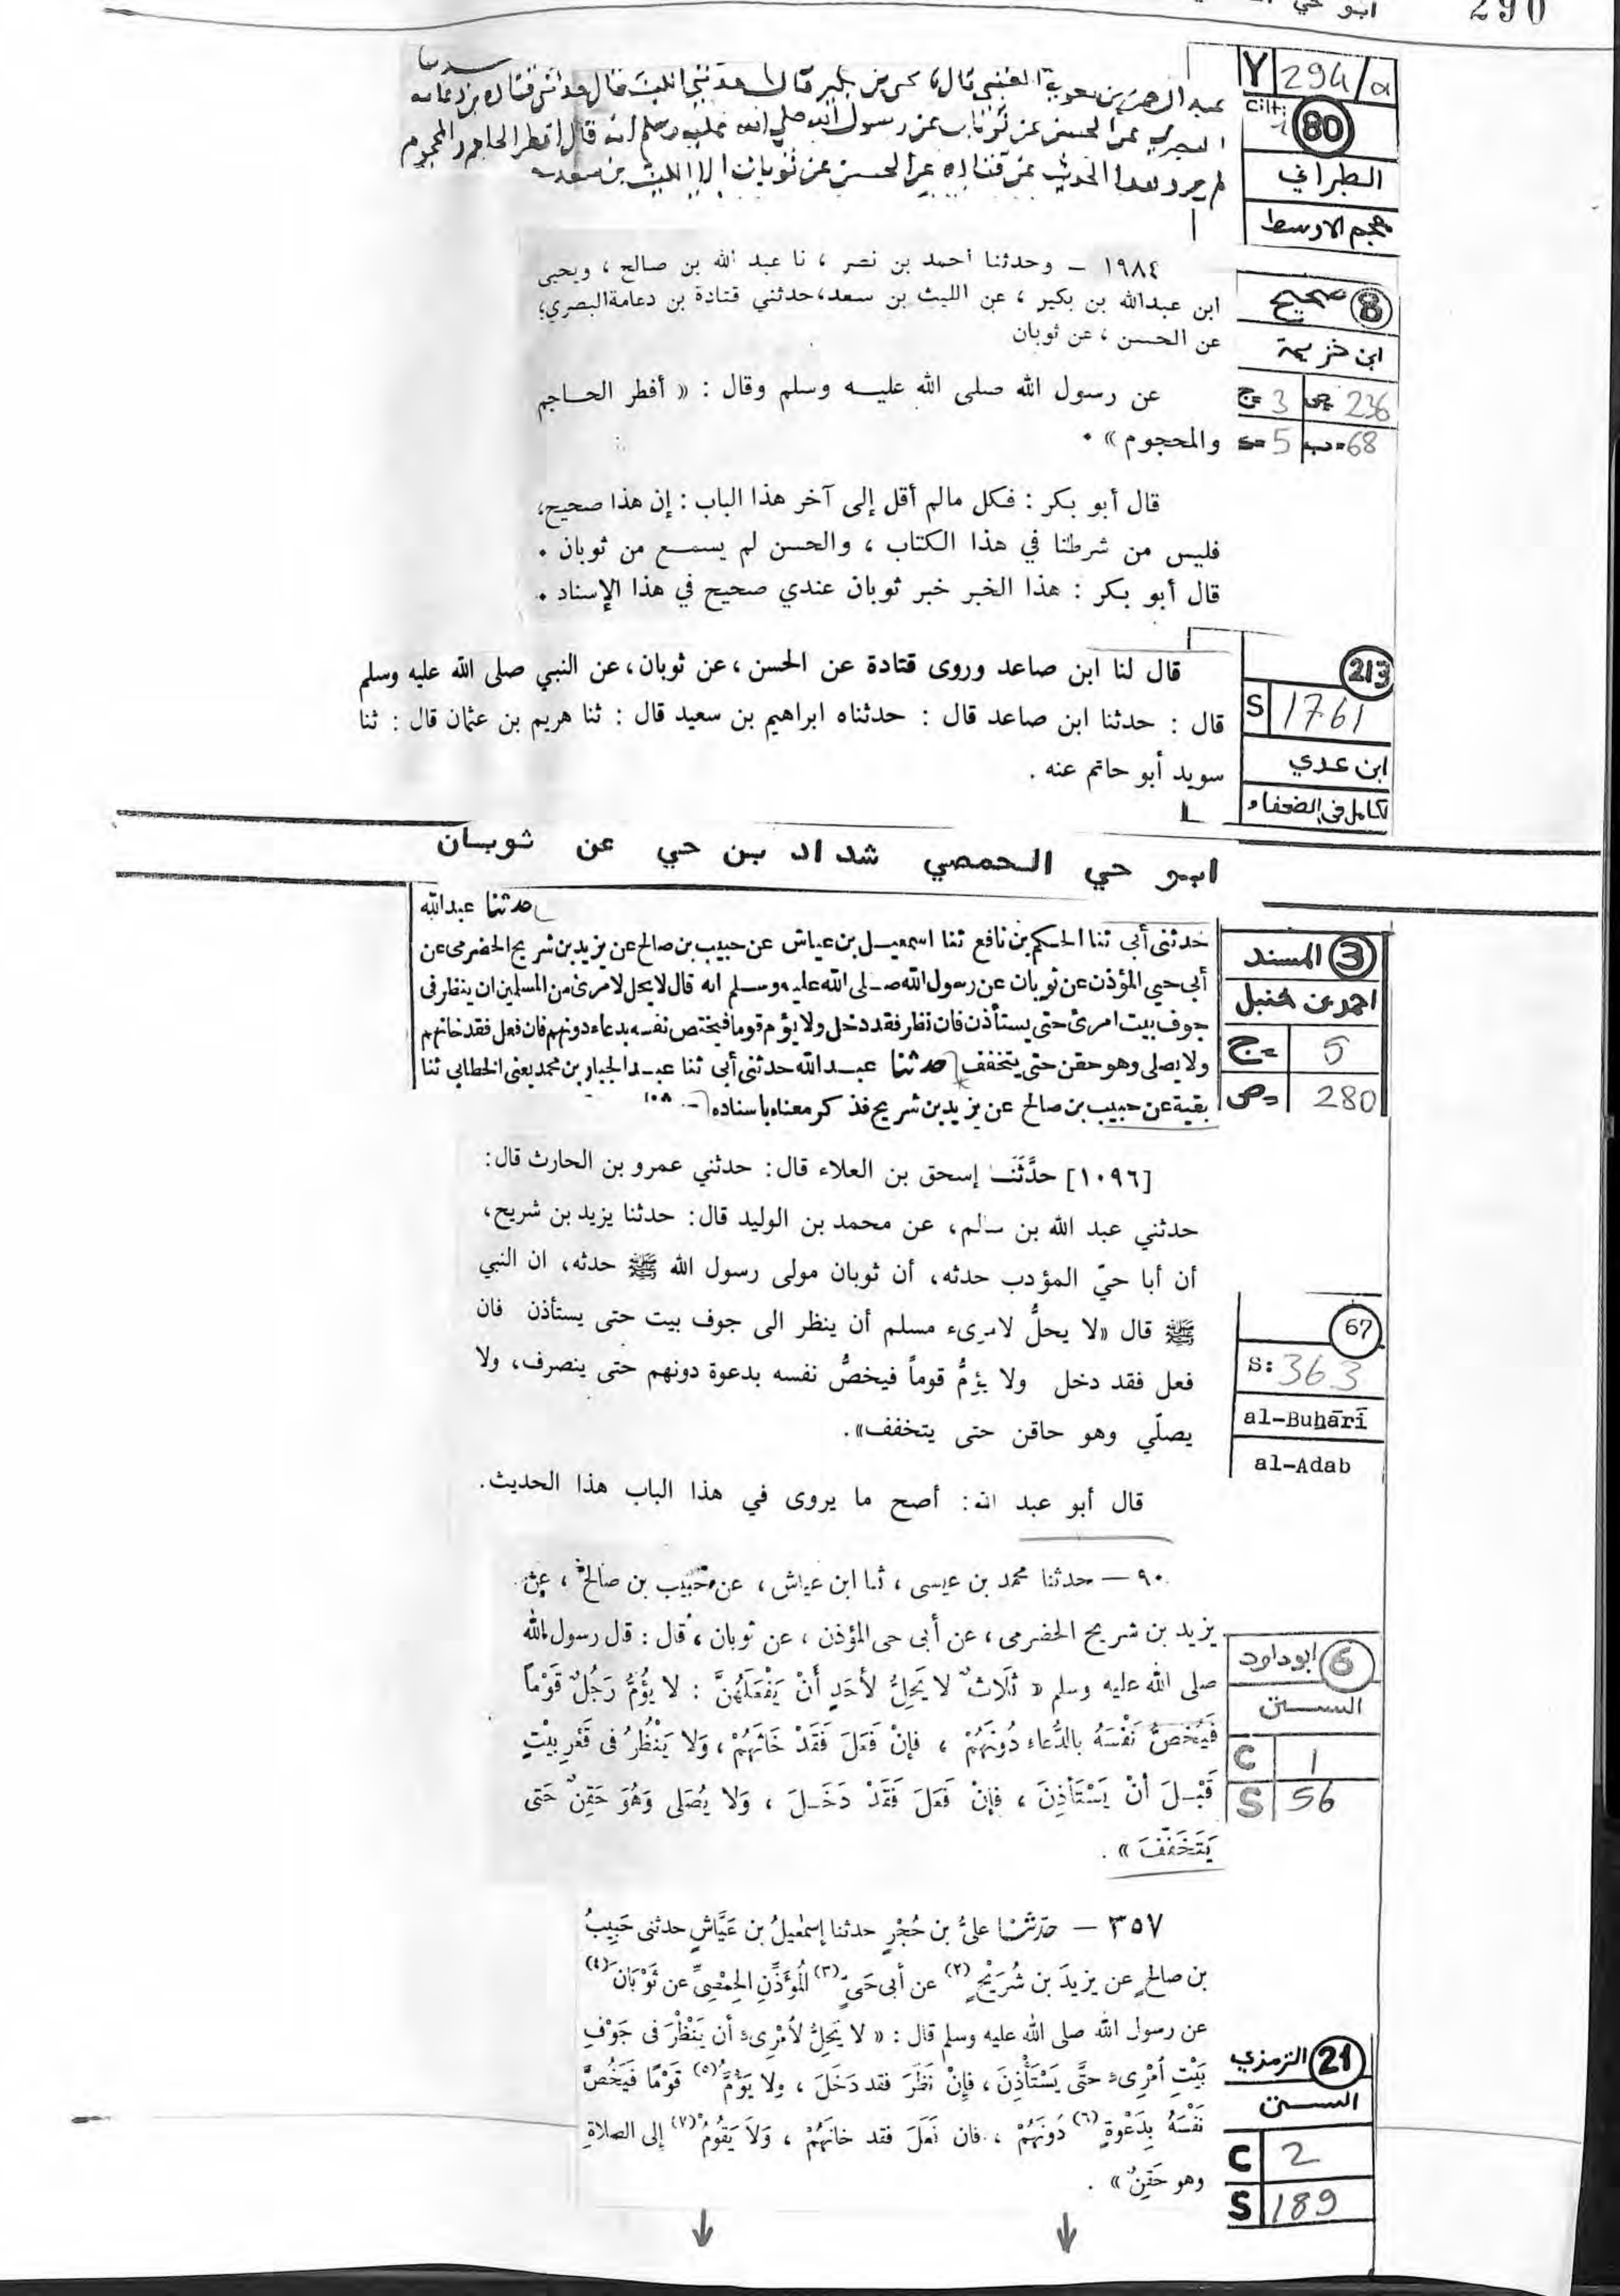 290
ابو حي
Y 294/a
Cilt: 1 80
الطبراني
معجم الاوسط
قال حدثني الليث قال حدثني قتادة بن دعامة
البصري عن الحسن عن ثوبان عن رسول الله صلى الله عليه وسلم انه قال افطر الحاجم والمحجوم
لم يرو هذا الحديث عن قتادة عن الحسن عن ثوبان الا الليث بن سعد
8 صحيح
ابن خزيمة
ج= 3 ص= 236
5 ب= 68
١٩٨٤ - وحدثنا احمد بن نصر ، نا عبد الله بن صالح ، ويحيى
ابن عبدالله بن بكير ، عن الليث بن سعد، حدثني قتادة بن دعامة البصري؛
عن الحسن ، عن ثوبان
عن رسول الله صلى الله عليه وسلم وقال : « أفطر الحاجم
والمحجوم » .
قال أبو بكر : فكل مالم أقل إلى آخر هذا الباب : إن هذا صحيح،
فليس من شرطنا في هذا الكتاب ، والحسن لم يسمع من ثوبان .
قال أبو بكر : هذا الخبر خبر ثوبان عندي صحيح في هذا الإسناد .
213
S 1761
ابن عدي
كامل في الضعفاء
قال لنا ابن صاعد وروى قتادة عن الحسن ، عن ثوبان، عن النبي صلى الله عليه وسلم
قال : حدثنا ابن صاعد قال : حدثناه ابراهيم بن سعيد قال : ثنا هريم بن عثمان قال : ثنا
سويد أبو حاتم عنه .
ابو حي الحمصي شداد بن حي عن ثوبان
3 المسند
احمد بن حنبل
ج= 5
ص= 280
حدثنا عبدالله
حدثنى أبى ثنا الحكم بن نافع ثنا اسمعيل بن عياش عن حبيب بن صالح عن يزيد بن شريح الحضرمى عن
أبى حيي المؤذن عن ثوبان عن رسول الله صلى الله عليه وسلم انه قال لا يحل لامرئ من المسلمين ان ينظر فى
جوف بيت امرئ حتى يستأذن فان نظر فقد دخل ولا يؤم قوما فيختص نفسه بدعاء دونهم فان فعل فقد خانهم
ولا يصلى وهو حقن حتى يتخفف حدثنا عبد الله حدثنى أبى ثنا عبد الجبار بن محمد يعنى الخطابي ثنا
بقية عن حبيب بن صالح عن يزيد بن شريح فذكر معناه باسناده ١٠٨
[١٠٩٦] حدَّثَنَا إسحق بن العلاء قال: حدثني عمرو بن الحارث قال:
حدثني عبد الله بن سالم، عن محمد بن الوليد قال: حدثنا يزيد بن شريح،
أن أبا حيّ المؤدب حدثه، أن ثوبان مولى رسول الله ﷺ حدثه، ان النبي
ﷺ قال «لا يحلُّ لامرىء مسلم أن ينظر الى جوف بيت حتى يستأذن فان
فعل فقد دخل ولا يؤمُّ قوماً فيخصُّ نفسه بدعوة دونهم حتى ينصرف، ولا
يصلّي وهو حاقن حتى يتخفف».
قال أبو عبد الله: أصح ما يروى في هذا الباب هذا الحديث.
67
S: 363
al-Buḫārī
al-Adab
٩٠ - حدثنا محمد بن عيسى ، ثنا ابن عياش ، عن حبيب بن صالح ، عن
يزيد بن شريح الحضرمى ، عن أبى حى المؤذن ، عن ثوبان ، قال : قال رسول الله
صلى الله عليه وسلم « ثَلَاثٌ لا يَحِلُّ لأَحَدٍ أَنْ يَفْعَلَهُنَّ : لا يَؤُمُّ رَجُلٌ قَوْمًا
فَيَخُصُّ نَفْسَهُ بالدُّعَاءِ دُونَهُمْ ، فإنْ فَعَلَ فَقَدْ خَانَهُمْ ، وَلا يَنْظُرُ فى قَعْرِ بيْتٍ
قَبْلَ أنْ يَسْتَأْذِنَ ، فإنْ فَعَلَ فَقَدْ دَخَلَ ، وَلا يُصَلى وَهُوَ حَقِنٌ حَتى
يَتَخَفَّفَ » .
6 ابوداود
السنن
C 1
S 56
٣٥٧ - حدّثنا علىُّ بن حُجْرٍ حدثنا إسمٰعيلُ بن عَيَّاشٍ حدثنى حَبِيبُ
بن صالحٍ عن يزيدَ بن شُرَيْحٍ (٢) عن أبى حَىٍّ (٣) المُؤَذِّنِ الحِمْصِىِّ عن ثَوْبَانَ (٤)
عن رسول الله صلى الله عليه وسلم قال : « لا يَحِلُّ لأمْرِىءٍ أن يَنْظُرَ فى جَوْفِ
بَيْتِ أمْرِىءٍ حتَّى يَسْتَأْذِنَ ، فإنْ نَظَرَ فقد دَخَلَ ، ولا يَؤُمَّ (٥) قَوْمًا فَيَخُصَّ
نَفْسَهُ بِدَعْوَةٍ (٦) دُونَهُمْ ، فان فَعَلَ فقد خانَهُمْ ، وَلَا يَقُومُ (٧) إلى الصلاةِ
وهو حَقِنٌ » .
21 الترمذي
السنن
C 2
S 189